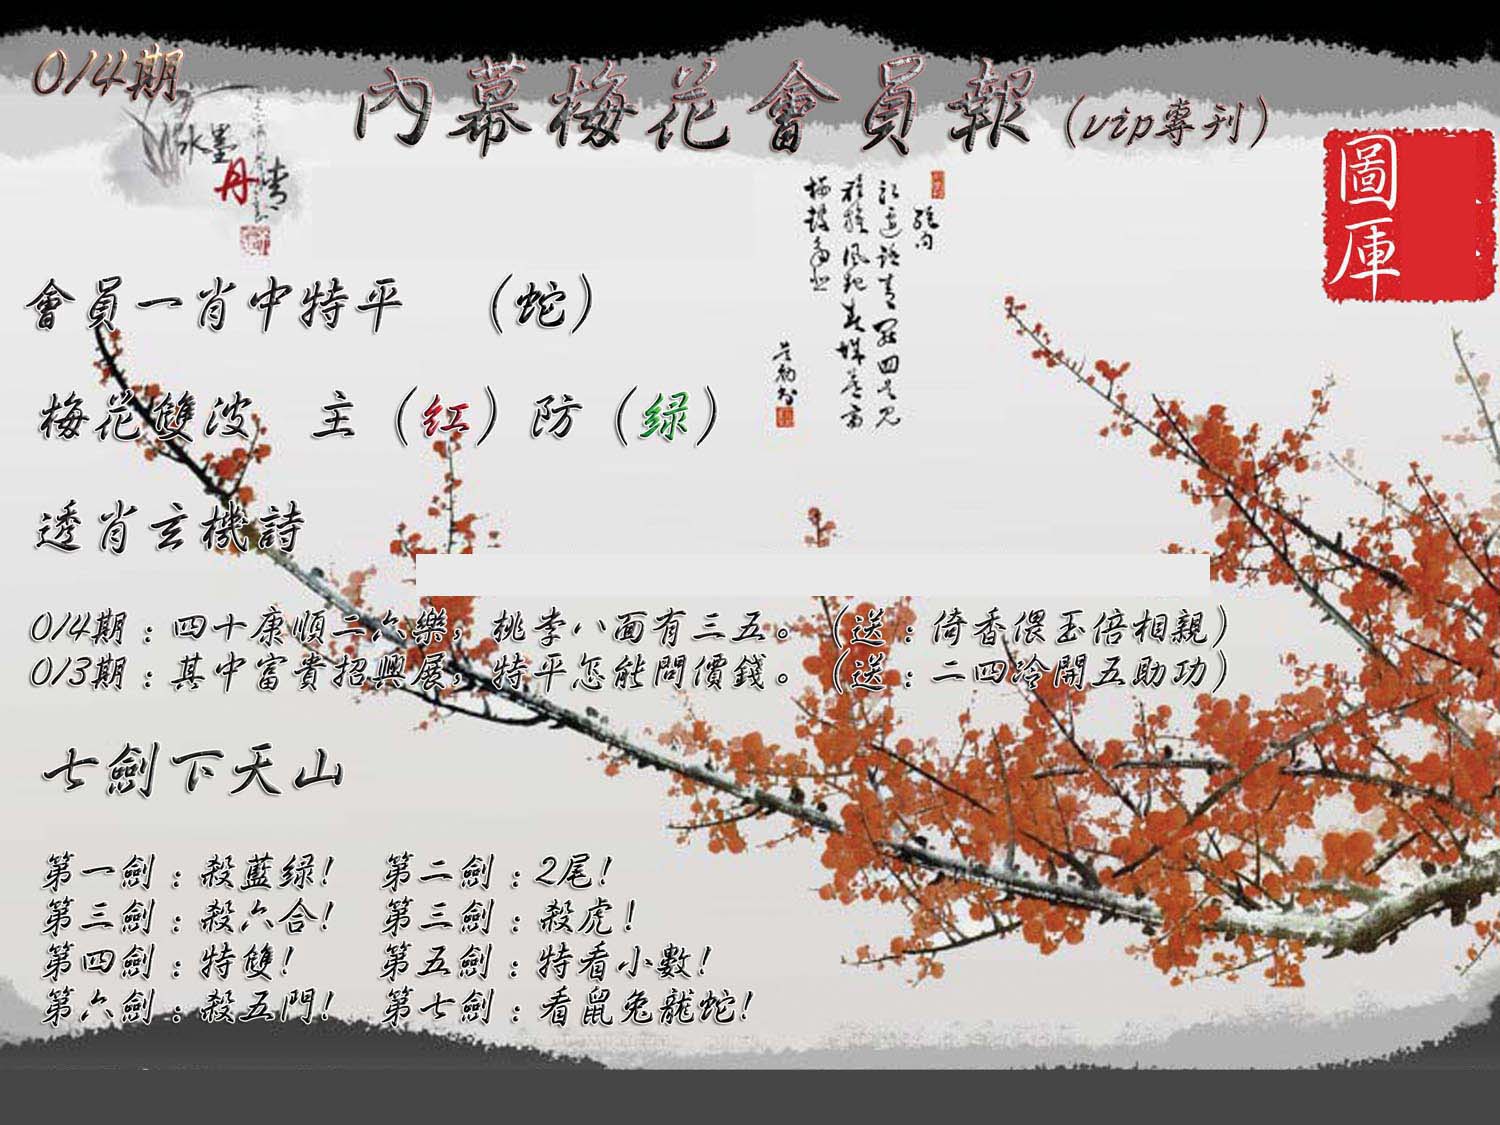 014期
內幕梅花會員報（vip專刊）
水墨
丹青
圖庫
會員一肖中特平 （蛇）
梅花雙波 主（红）防（绿）
透肖玄機詩
014期：四十康順二六樂，桃李八面有三五。（送：倚香偎玉倍相親）
013期：其中富貴招興展，特平怎能問價錢。（送：二四冷開五助功）
七劍下天山
第一劍：殺藍绿！ 第二劍：2尾！
第三劍：殺六合！ 第三劍：殺虎！
第四劍：特雙！ 第五劍：特看小數！
第六劍：殺五門！ 第七劍：看鼠兔龍蛇！